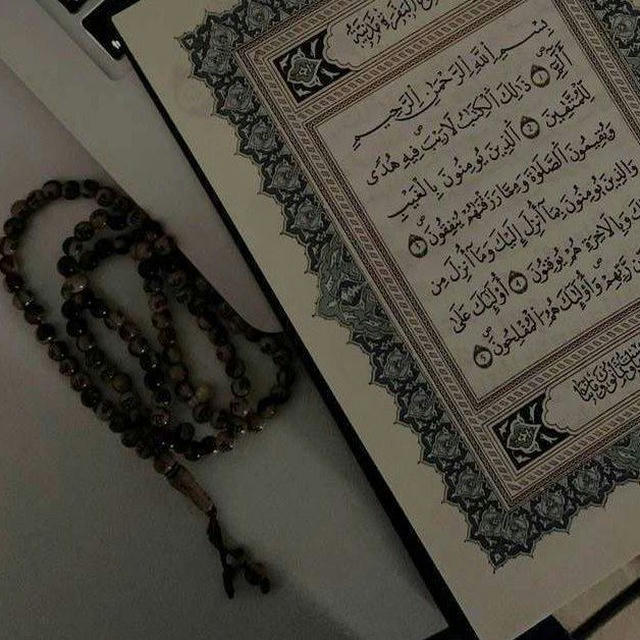 الْبَقَرَةِ مَدَنِيَّةٌ
بِسْمِ اللَّهِ الرَّحْمٰنِ الرَّحِيمِ
الٓمٓ ۝١ ذٰلِكَ الْكِتٰبُ لَا رَيْبَ فِيهِ هُدًى
لِلْمُتَّقِينَ ۝٢ الَّذِينَ يُؤْمِنُونَ بِالْغَيْبِ
وَيُقِيمُونَ الصَّلٰوةَ وَمِمَّا رَزَقْنٰهُمْ يُنْفِقُونَ ۝٣
وَالَّذِينَ يُؤْمِنُونَ بِمَا أُنْزِلَ إِلَيْكَ وَمَا أُنْزِلَ مِنْ
وَبِالْاٰخِرَةِ هُمْ يُوقِنُونَ ۝٤ أُولٰئِكَ عَلٰى
رَبِّهِمْ وَأُولٰئِكَ هُمُ الْمُفْلِحُونَ ۝٥